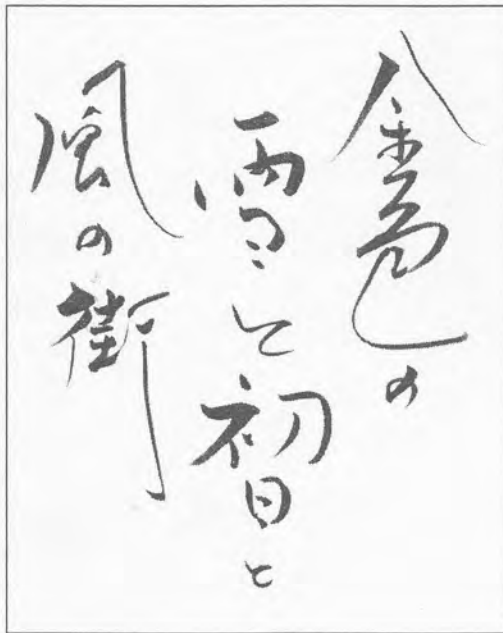 金色の
雪と初日と
風の街